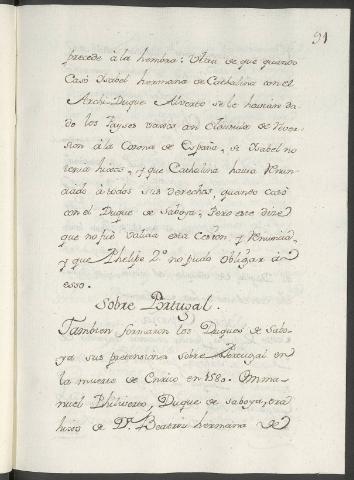 91
precede à la hembra: Ultra de que quando
Casò Isabel hermana de Cathalina con el
Archi-Duque Alverto se le havian da-
do los Payses vaxos con Clausula de rever-
sion à la Corona de España, si Isabel no
tenia hixos, y que Cathalina havia renun-
ciado à todos sus derechos, quando casò
con el Duque de Saboya, Pero este dize
que no fuè valida esta Cesion, y Renuncia,
y que Phelipe 2º no pudo obligar à
esso.
Sobre Portugal.
Tambien formaron los Duques de Sabo-
ya sus pretensiones sobre Portugal en
la muerte de Enrico en 1580. Imma-
nuel Philiverto, Duque de Saboya, era
hixo de Dª. Beatriz hermana de